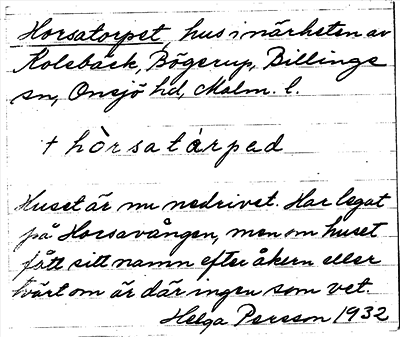 Horsatorpet, hus i närheten av
Kolsbäck, Bögerup, Billinge
sn, Onsjö hd, Malm. l.
+ hòrsatárpad
Huset är nu nedrivet. Har legat
på Horsavången, men om huset
fått sitt namn efter åkern eller
tvärt om är där ingen som vet.
Helga Persson 1932